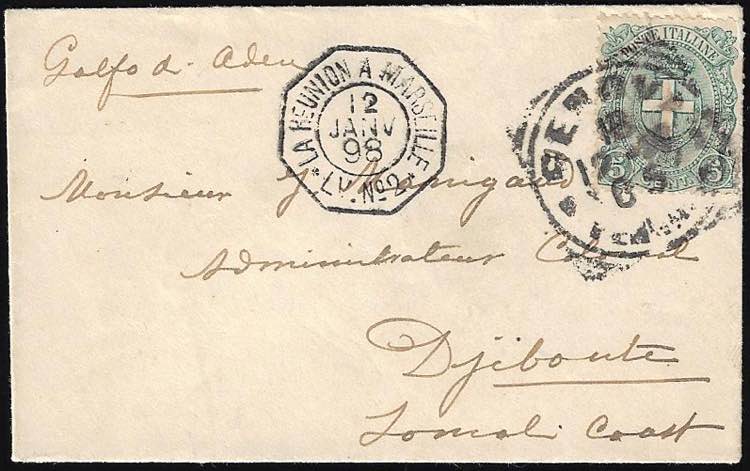 Golfo di Aden
LA RÉUNION A MARSEILLE
12
JANV
98
* LV. Nº2 *
POSTE ITALIANE
5 5
GENOVA
Monsieur J
Administrateur Colonial
Djiboute
Somali Coast